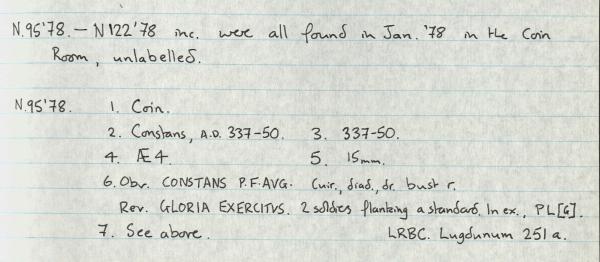 N.95'78. – N122'78 inc. were all found in Jan. '78 in the Coin
Room, unlabelled.
N.95'78. 1. Coin.
2. Constans, A.D. 337-50. 3. 337-50.
4. Æ4. 5. 15mm.
6. Obv. CONSTANS P.F.AVG. Cuir., diad., dr. bust r.
Rev. GLORIA EXERCITVS. 2 soldies flanking a standard. In ex., PL[G].
7. See above. LRBC. Lugdunum 251a.